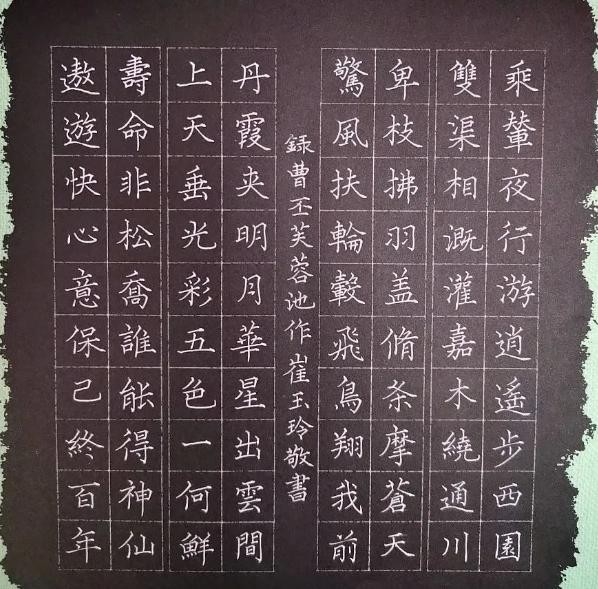 乘輦夜行游逍遙步西園
雙渠相溉灌嘉木繞通川
卑枝拂羽盖脩条摩蒼天
驚風扶輪轂飛鳥翔我前
録曹丕芙蓉池作崔玉玲敬書
丹霞夾明月華星出雲間
上天垂光彩五色一何鮮
壽命非松喬誰能得神仙
遨遊快心意保己終百年